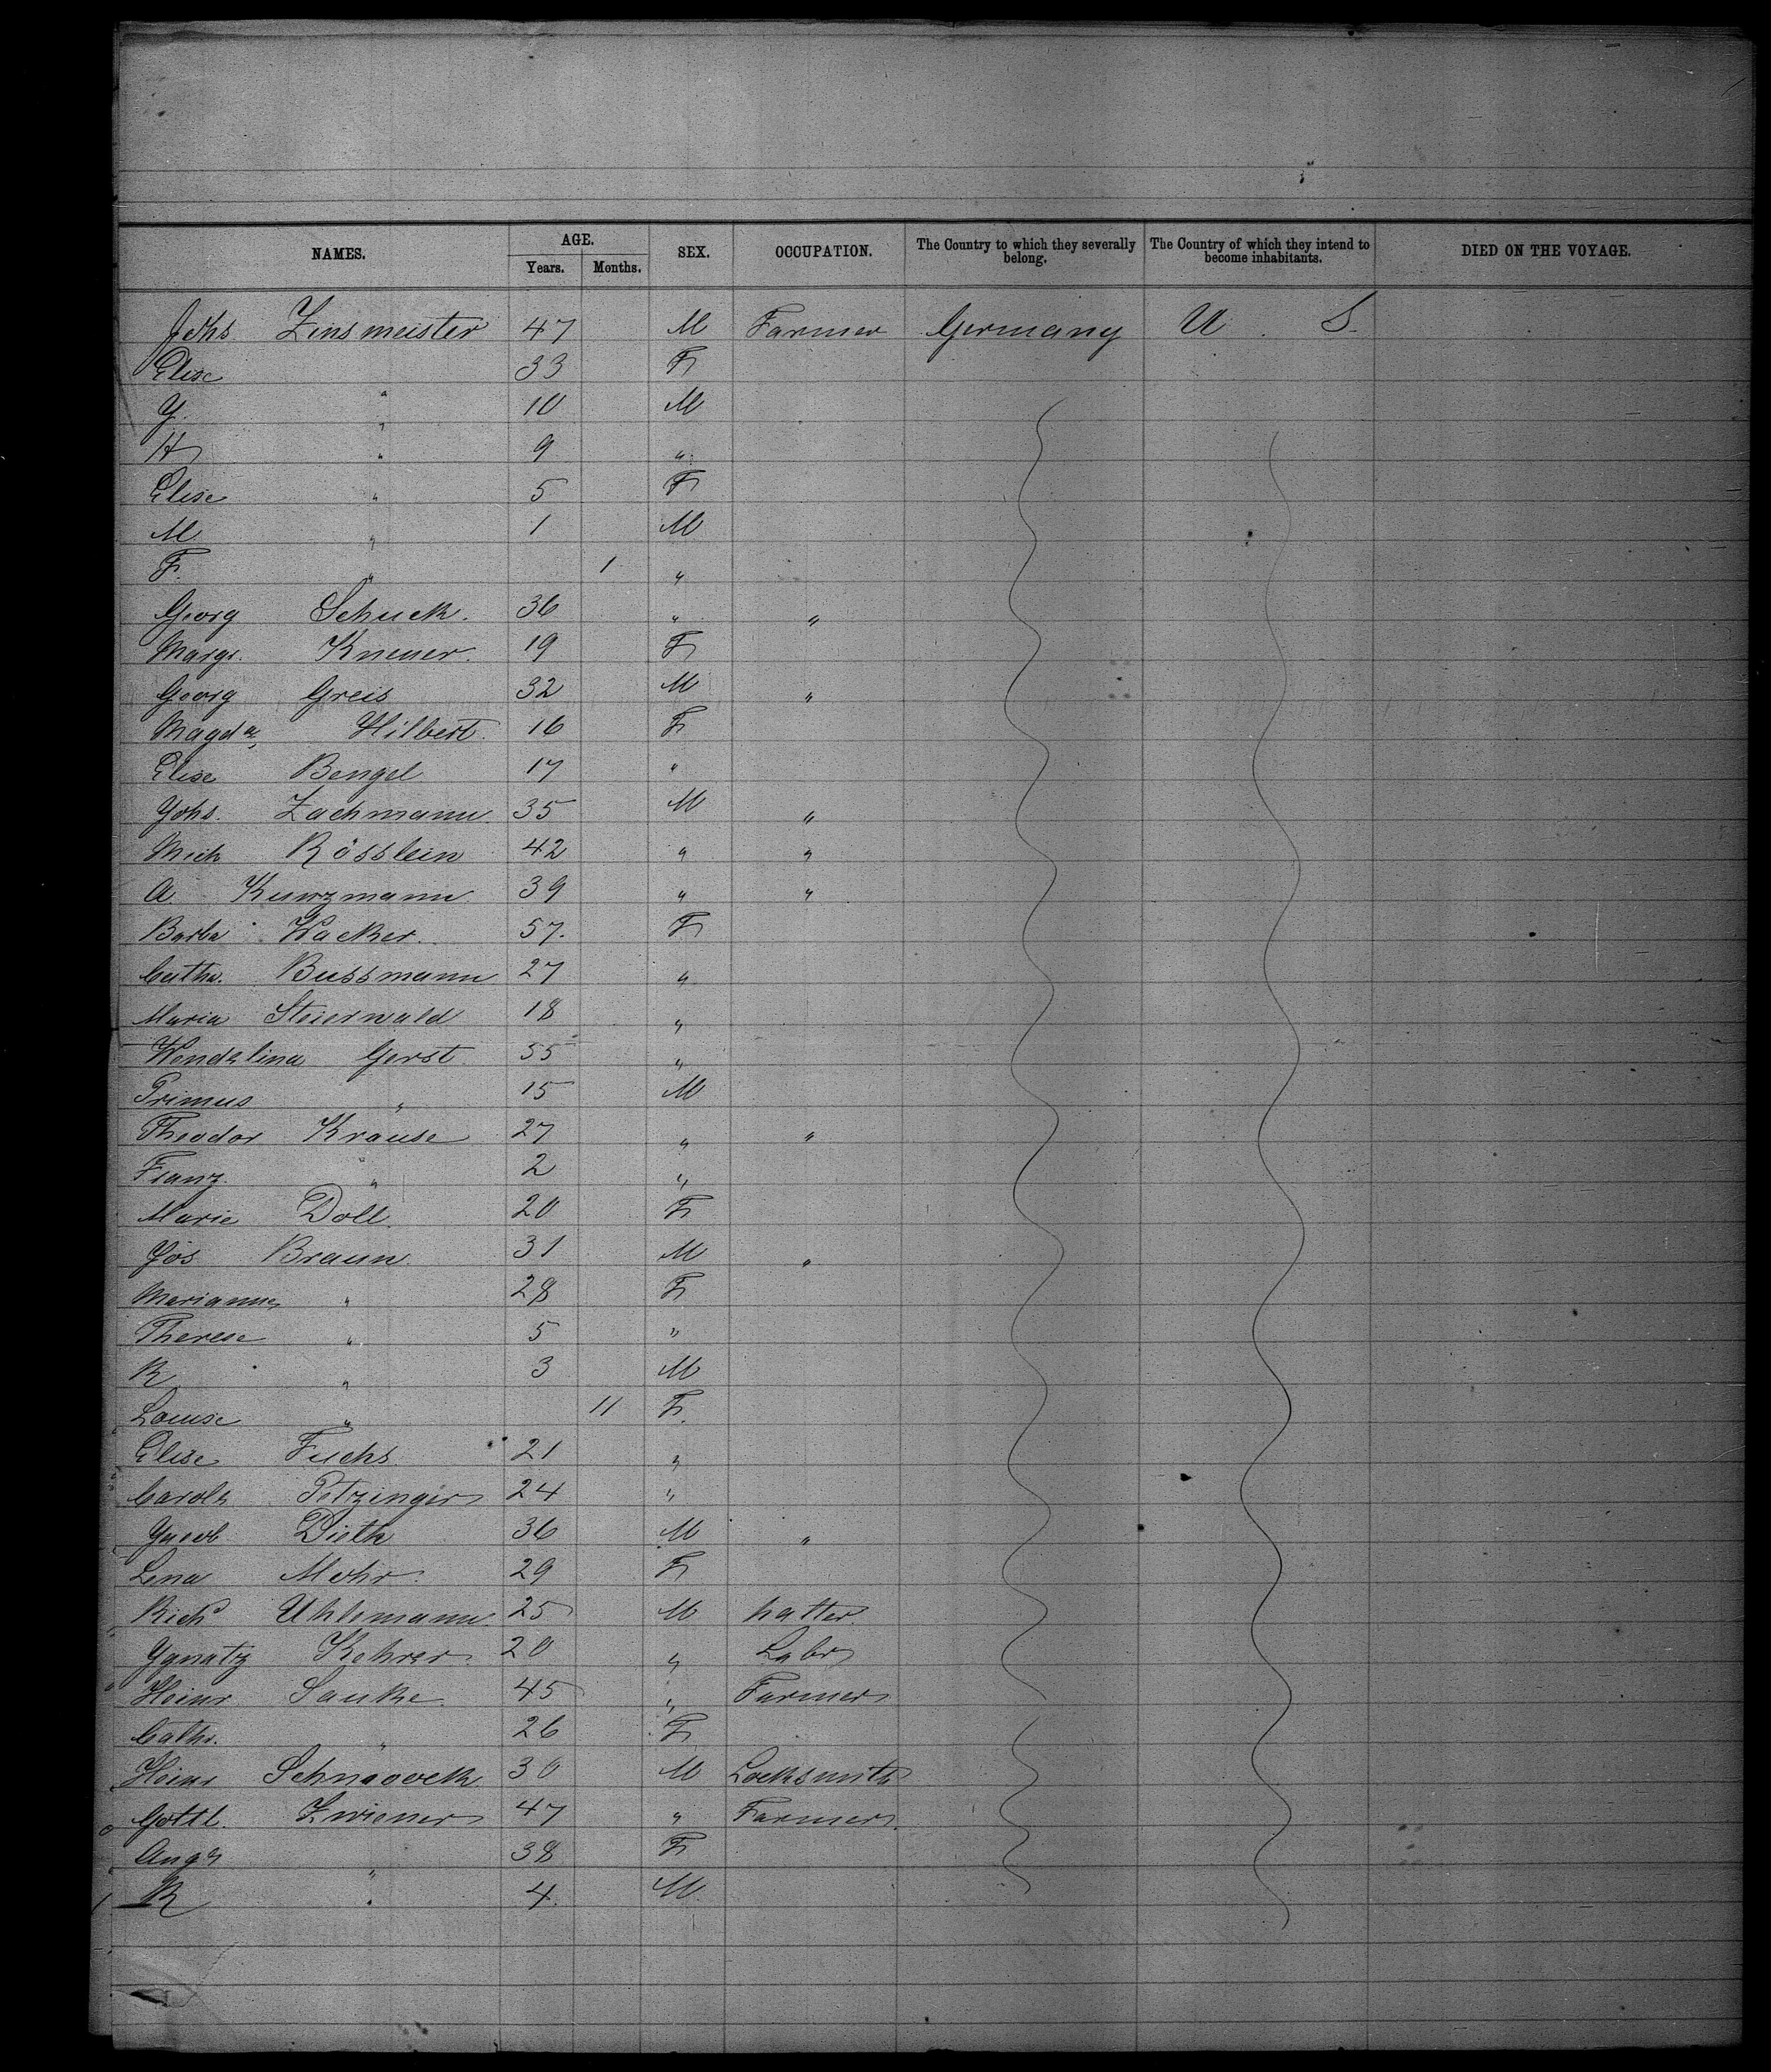 NAMES. AGE. Years. Months. SEX. OCCUPATION. The Country to which they severally belong. The Country of which they intend to become inhabitants. DIED ON THE VOYAGE.
Johs Zinsmeister 47 M Farmer Germany U. S.
Elise 33 F
Y. " 10 M
H " 9 "
Elise " 5 F
M " 1 M
F. " 1 "
Georg Schuck. 36 " "
Margr. Kneuer. 19 F
Georg Greis 32 M "
Magda Hilbert. 16 F
Elise Bengel 17 "
Yohs. Zachmann 35 M "
Mich Rösslein 42 " "
A. Kunzmann 39 " "
Barba Wacker. 57. F
Catha. Bussmann 27 "
Maria Steierwald 18 "
Wendelina Gerst 55 "
Primus " 15 M
Theodor Krause 27 " "
Franz " 2 "
Marie Doll. 20 F
Jos Braun. 31 M "
Marianne " 28 F
Therese " 5 "
R " 3 M
Louise " 11 F.
Elise Fuchs. 21 "
Carole Petzinger 24 "
Yacob Dieth 36 M "
Lena Mohr. 29 F
Richd Uhlemann. 25 M hatter
Ygnatz Kohrer. 20 " Labr
Heinr Sauke 45 " Farmer
Cathr. " 26 F
Heinr 30 M Locksmith
Gottl. Zwiener 47 " Farmer.
Auge " 38 F
R " 4. M.